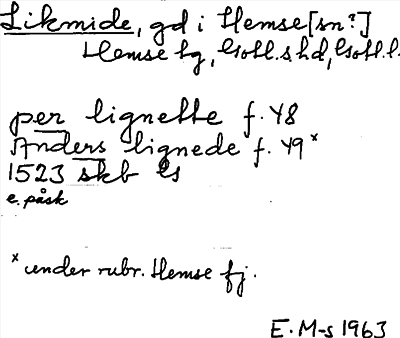 Likmide, gd i Hemse [sn?]
Hemse tg, Gotl. s hd, Gotl. l.
per lignette f. 48
Anders lignede f. 49 x
1523 skb
e. påsk
x under rubr. Hemse fj.
E. M-s 1963